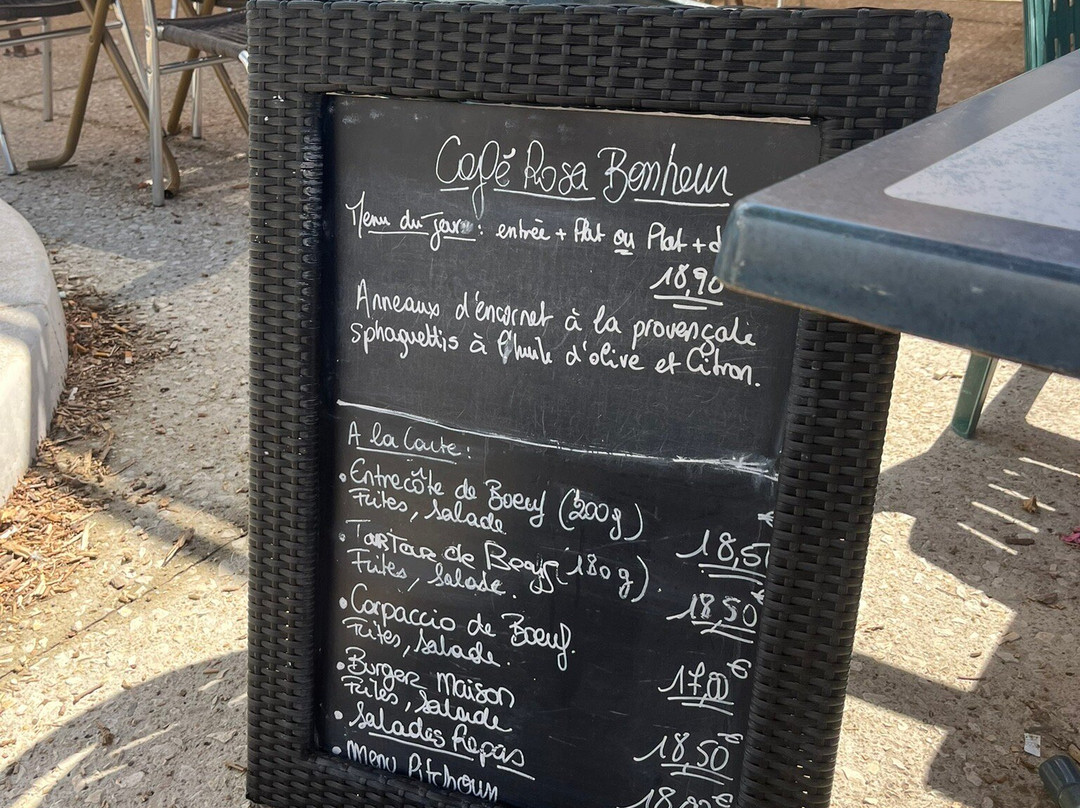 Café Rosa Bonheur
Menu du Jour : entrée + Plat ou Plat + d
18,90
Anneaux d'encornet à la provençale
sphaguettis à l'huile d'olive et Citron.
A la Carte :
• Entrecôte de Boeuf (200g)
Frites, Salade
18,50
• TarTare de Boeuf (180g).
Frites, Salade.
18,50€
• Carpaccio de Boeuf.
Frites, Salade.
17,00€
• Burger Maison
Frites, Salade
18,50€
• Salades Repas
• Menu Pitchoun